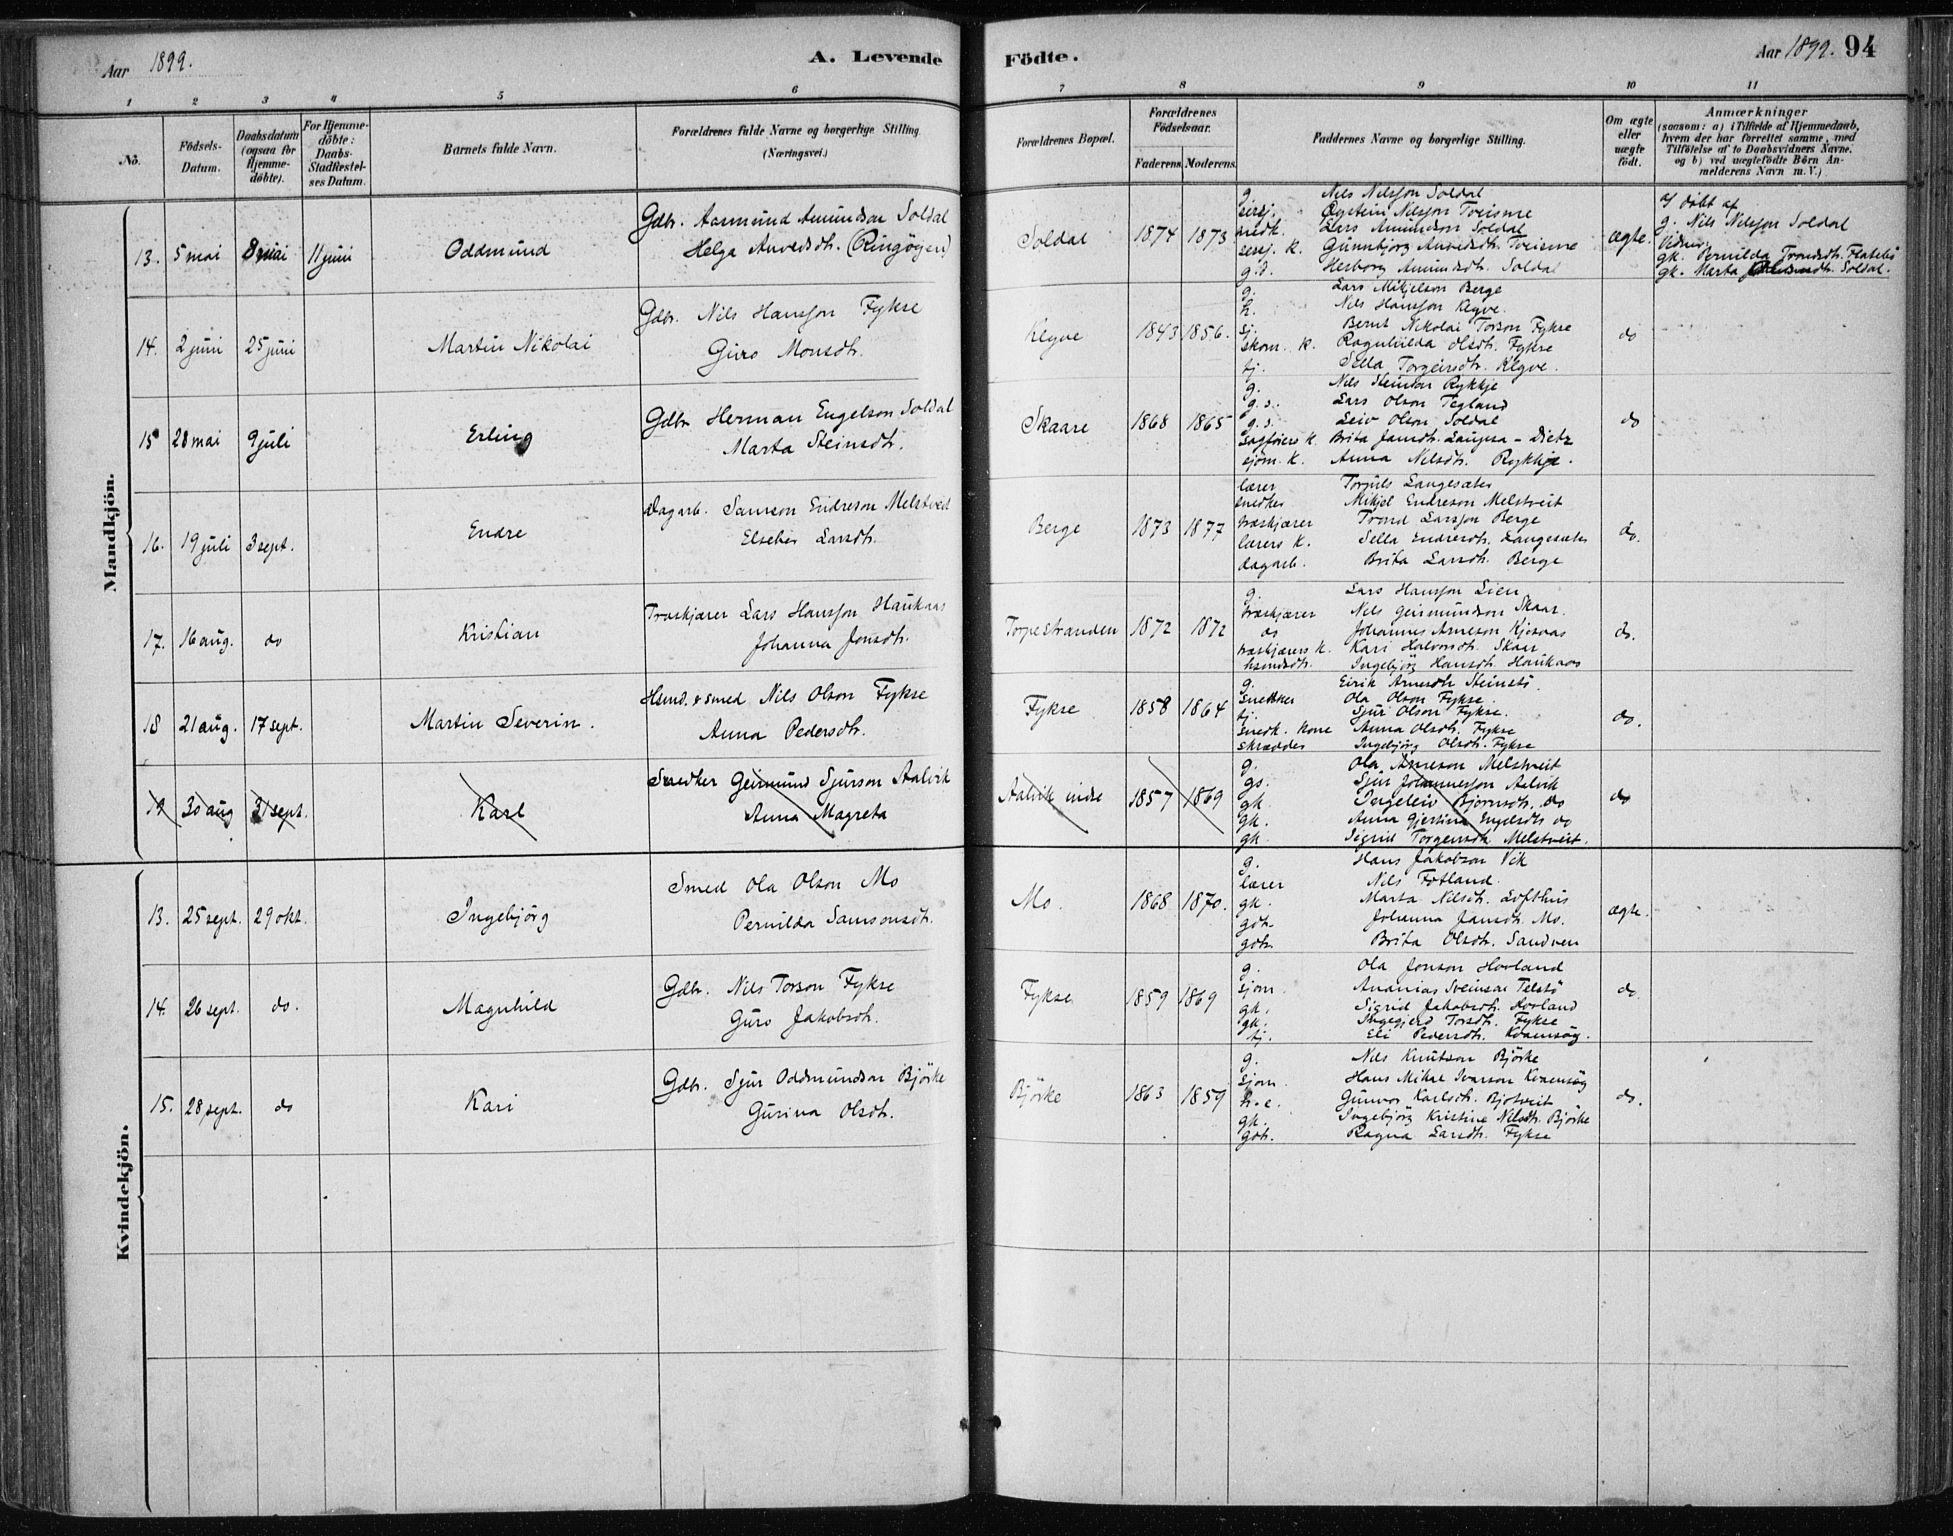 Aar 1899.
A. Levende
Födte.
Aar 1899. 94
1 2 3 4 5 6 7 8 9 10 11
No.
Födsels-Datum.
Daabsdatum (ogsaa for Hjemmedöbte).
For Hjemmedöbte: Daabs-Stadfestelses Datum.
Barnets fulde Navn.
Forældrenes fulde Navne og borgerlige Stilling.
(Næringsvei.)
Forældrenes Bopæl.
Forældrenes Födselsaar.
Faderens. Moderens.
Faddernes Navne og borgerlige Stilling.
Om ægte eller uægte födt.
Anmærkninger
(saasom: a) i Tilfælde af Hjemmedaab, hvem der har forrettet samme, med Tilföielse af to Daabsvidners Navne. og b) ved uegtefödte Börn Anmelderens Navn m. V.)
Mandkjön.
13. 5 mai 8 mai 11 juni Oddmund
Gdbr. Aasmund Amundson Soldal
Helga Anvedsdtr. (Ringöyen)
Soldal 1874 1873
g. Nils Nilsson Soldal
Öystein Nilsson Tveisme
snedk. Lars Amundson Soldal
k. Gunnbjörg Anvedsdtr. Tveisme
g.d. Herborg Amundsdt. Soldal
ægte.
döbt af
g. Nils Nilsson Soldal
Vidner
gk. Pernilda Trondsdtr. Flatebö
gk. Marta Soldal.
14. 2 juni 25 juni Martin Nikolai
Gdbr. Nils Hansson Fykse
Guro Monsdtr.
Klyve 1843 1856.
g. Lars Mikjelson Berge
h. Nils Hansson Klyve.
sj. Bernt Nikolai Torson Fykse
skom. k. Ragnhilda Olsdtr. Fykse
tj. Sella Torgeirsdtr. Klyve.
do
15 28 mai 9 juli Erling
Gdbr Herman Engelson Soldal
Marta Steinsdtr.
Skaare 1868 1865
g. Nils Steinson Rykkje
g.s. Lars Olson Tegland
g.s. Leiv Olson Soldal
k. Brita Jansdtr. Laupsa - Dietz
sjöm. k. Anna Nelsdtr. Rykkje.
do
16. 19 juli 3 sept. Endre
Dagarb. Samson Endreson Melstveit
Elsebe Larsdtr.
Berge 1873 1877
lærer Torjuls Langesæter
snedker Mikjel Endreson Melstveit
træskjærer Trond Larsson Berge
lærers k. Sella Endresdtr. Langesæter
dagarb. Brita Larsdtr. Berge
do.
17. 16 aug. do Kristian
Træskjærer Lars Hansson Haukaas
Johanna Jonsdtr.
Torpestranden 1872 1872
g. Lars Hansson Lien
træskjærer Nils Geirmundson Skaar.
do Johannes Arneson Kjosaas
træskjærers k. Kari Halvorsdtr. Skaar
Ingebjörg Hansdtr. Haukaas
do.
18 21 aug. 17 sept. Martin Severin.
Husmd. & smed Nils Olson Fykse
Anna Pedersdtr.
Fykse 1858 1864
g. Eirik Arneson Steinstö.
snedker Ola Olson Fykse.
tj. Sjur Olson Fykse.
snedk. kone Anna Olsdtr. Fykse
skrædder Ingebjörg Olsdtr. Fykse
do.
19 30 aug 31 sept. Karl
Snedker Geirmund Sjurson Aalvik
Anna Magreta
Aalvik indre 1857 1869
g. Ola Arneson Melstveit
gs. Sjur Johannesson Aalvik
gk. Ingeleiv Bjornsdtr. do
gk. Anna Gjertina Engelsdtr do
gk. Sigrid Torgeirsdtr. Melstveit.
do
Kvindekjön.
13. 25 sept. 29 okt. Ingebjörg
Smed Ola Olson Mo
Pernilda Samsonsdtr.
Mo. 1868 1870.
g. Hans Jakobson Vik
lærer Nils Fotland.
gk. Marta Nilsdtr. Lofthus
gdtr. Johanna Jansdtr. Mo.
gdtr. Brita Olsdtr. Sandven
ægte.
14. 26 sept. do. Magnhild
Gdbr. Nils Torson Fykse
Guro Jakobsdtr.
Fykse 1859 1869
g. Ola Jonson Hovland
sjöm. Ananias Sveinson Telstö
gk. Sigrid Jakobsdtr. Hovland
gk. Ingegjerd Torsdtr. Fykse
tj. Eli Pedersdtr. Kvamsög.
do.
15. 28 sept. do Kari
Gdbr. Sjur Oddmundson Björke
Gurina Olsdtr.
Björke 1863 1859
g. Nils Knutson Björke
sjöm. Hans Mikal Ivarson Kvamsög
h.e. Gunvor Karlsdtr. Bjotveit
gk. Ingebjörg Kristine Nilsdtr. Björke
gdt. Ragna Larsdtr. Fykse
do.